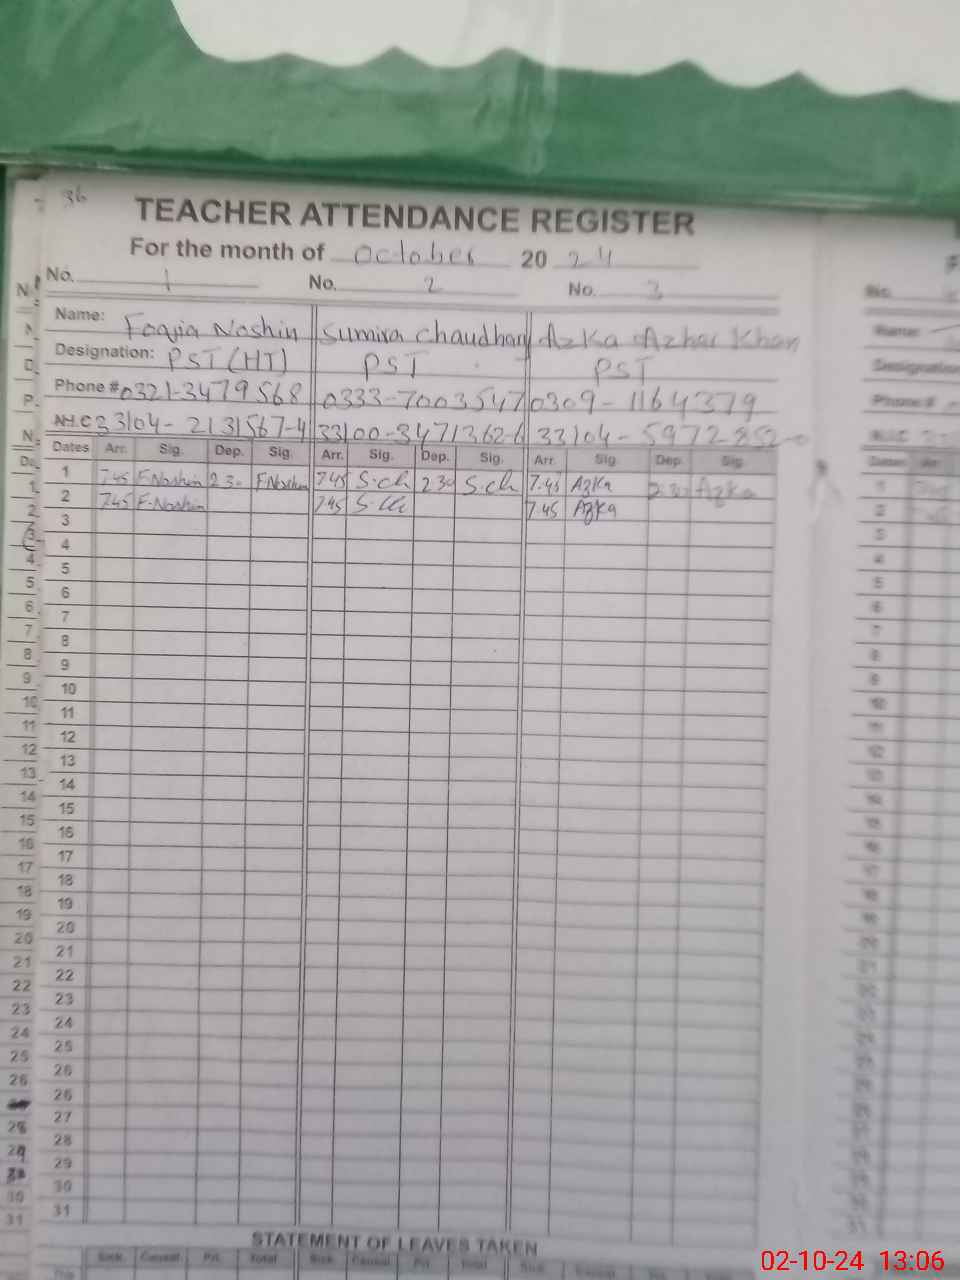 36
TEACHER ATTENDANCE REGISTER
For the month of October 20 24
No. 1 No. 2 No. 3
Name: Foqia Noshin Sumira Chaudhary Azka Azhar Khan
Designation: PST (HT) PST PST
Phone # 0321-3479568 0333-7003547 0309-1164379
N.I.C 33104-2131567-4 33100-3471362-6 33104-5972852-0
Dates Arr. Sig. Dep. Sig. Arr. Sig. Dep. Sig. Arr. Sig. Dep. Sig.
1 7.45 F.Noshin 2 30 F.Noshin 7.45 S.ch 2 30 S.ch 7.45 Azka 2.30 Azka
2 7.45 F.Noshin 7.45 S.ch 7.45 Azka
3
4
5
6
7
8
9
10
11
12
13
14
15
16
17
18
19
20
21
22
23
24
25
26
26
27
28
29
30
31
STATEMENT OF LEAVES TAKEN
Sick Casual Pri. Total Sick Casual Pri. Total Sick
02-10-24 13:06